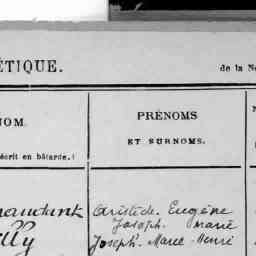 ÉTIQUE. de la N
NOM. PRÉNOMS
ET SURNOMS.
écrit en bâtarde.)
Aristide. Eugène
Joseph. Marie
Joseph. Marcel. Henri